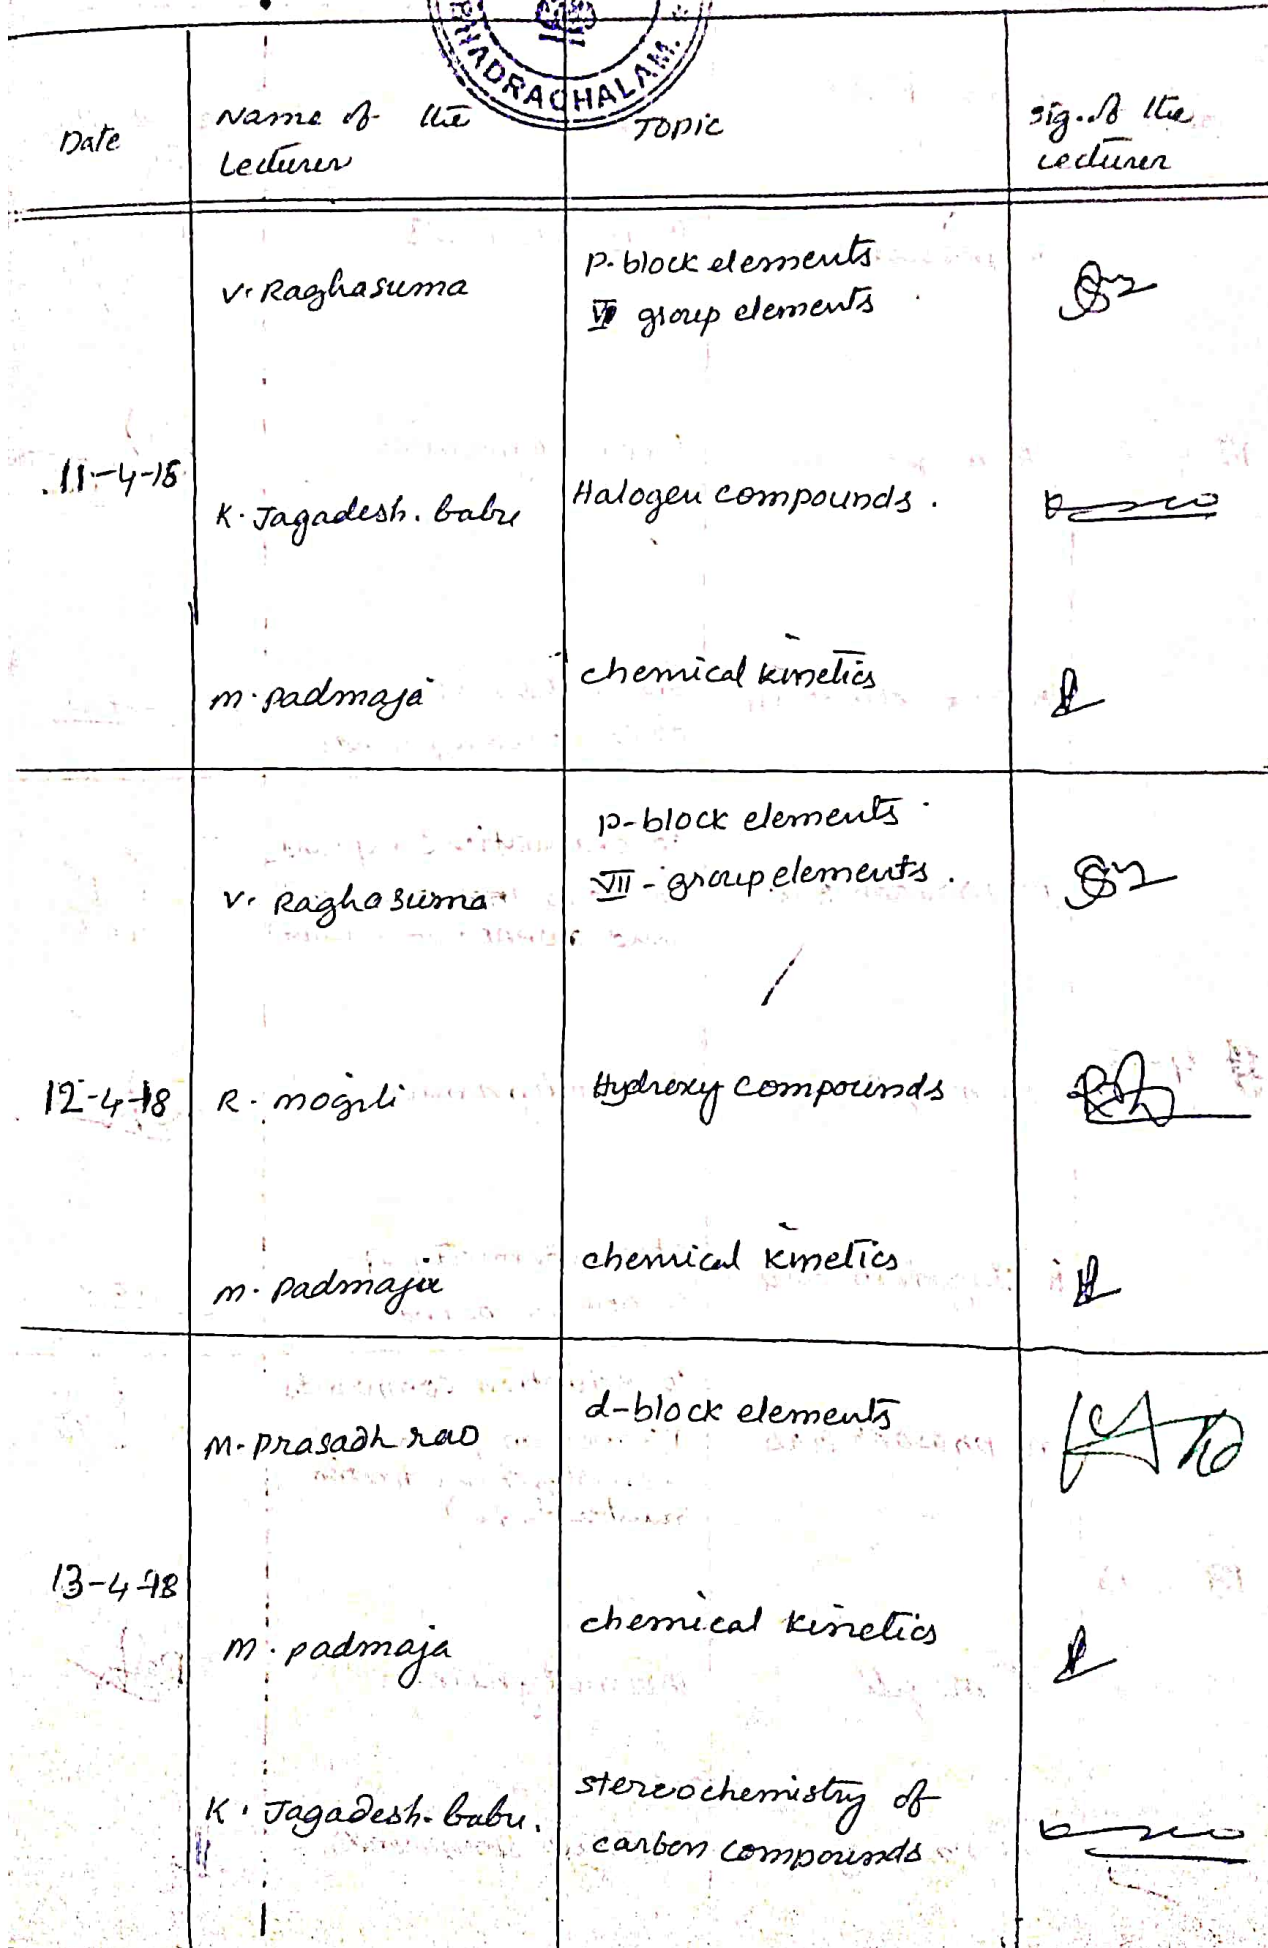 BHADRACHALAM.
Date
Name of the
Lecturer
Topic
sig. of the
Lecturer
V. Raghasuma
P-block elements
group elements
11-4-18
K. Jagadesh. babu
Halogen compounds.
M. Padmaja
chemical kinetics
V. Raghasuma
p-block elements
VII - group elements.
12-4-18
R. mogili
Hydroxy compounds
M. Padmaja
chemical kinetics
M. Prasadh rao
d-block elements
13-4-18
M. padmaja
chemical kinetics
K. Jagadesh. babu.
stereochemistry of
carbon compounds